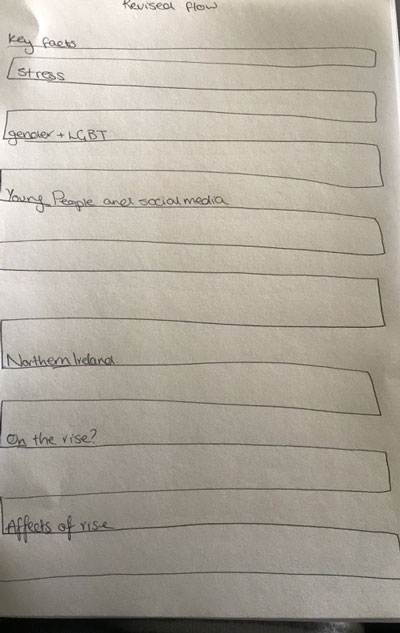 Revised flow
Key facts
Stress
gender + LGBT
Young People and social media
Northern Ireland
On the rise?
Affects of rise